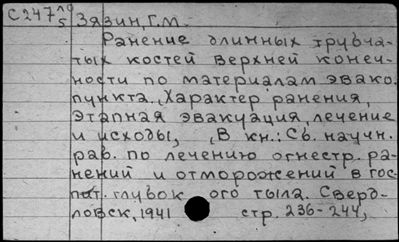 С247 10/5 Зязин, Г.М.
Ранение длинных трубча-
тых костей верхней конеч-
ности по материалам эвако.
пункта. Характер ранения,
этапная эвакуация, лечение
и исходы, В кн.: Сб. научн.
раб. по лечению огнестр. ра-
нений и отморожений в гос-
пит. глубок ого тыла. Сверд-
ловск, 1941 стр. 236-244,